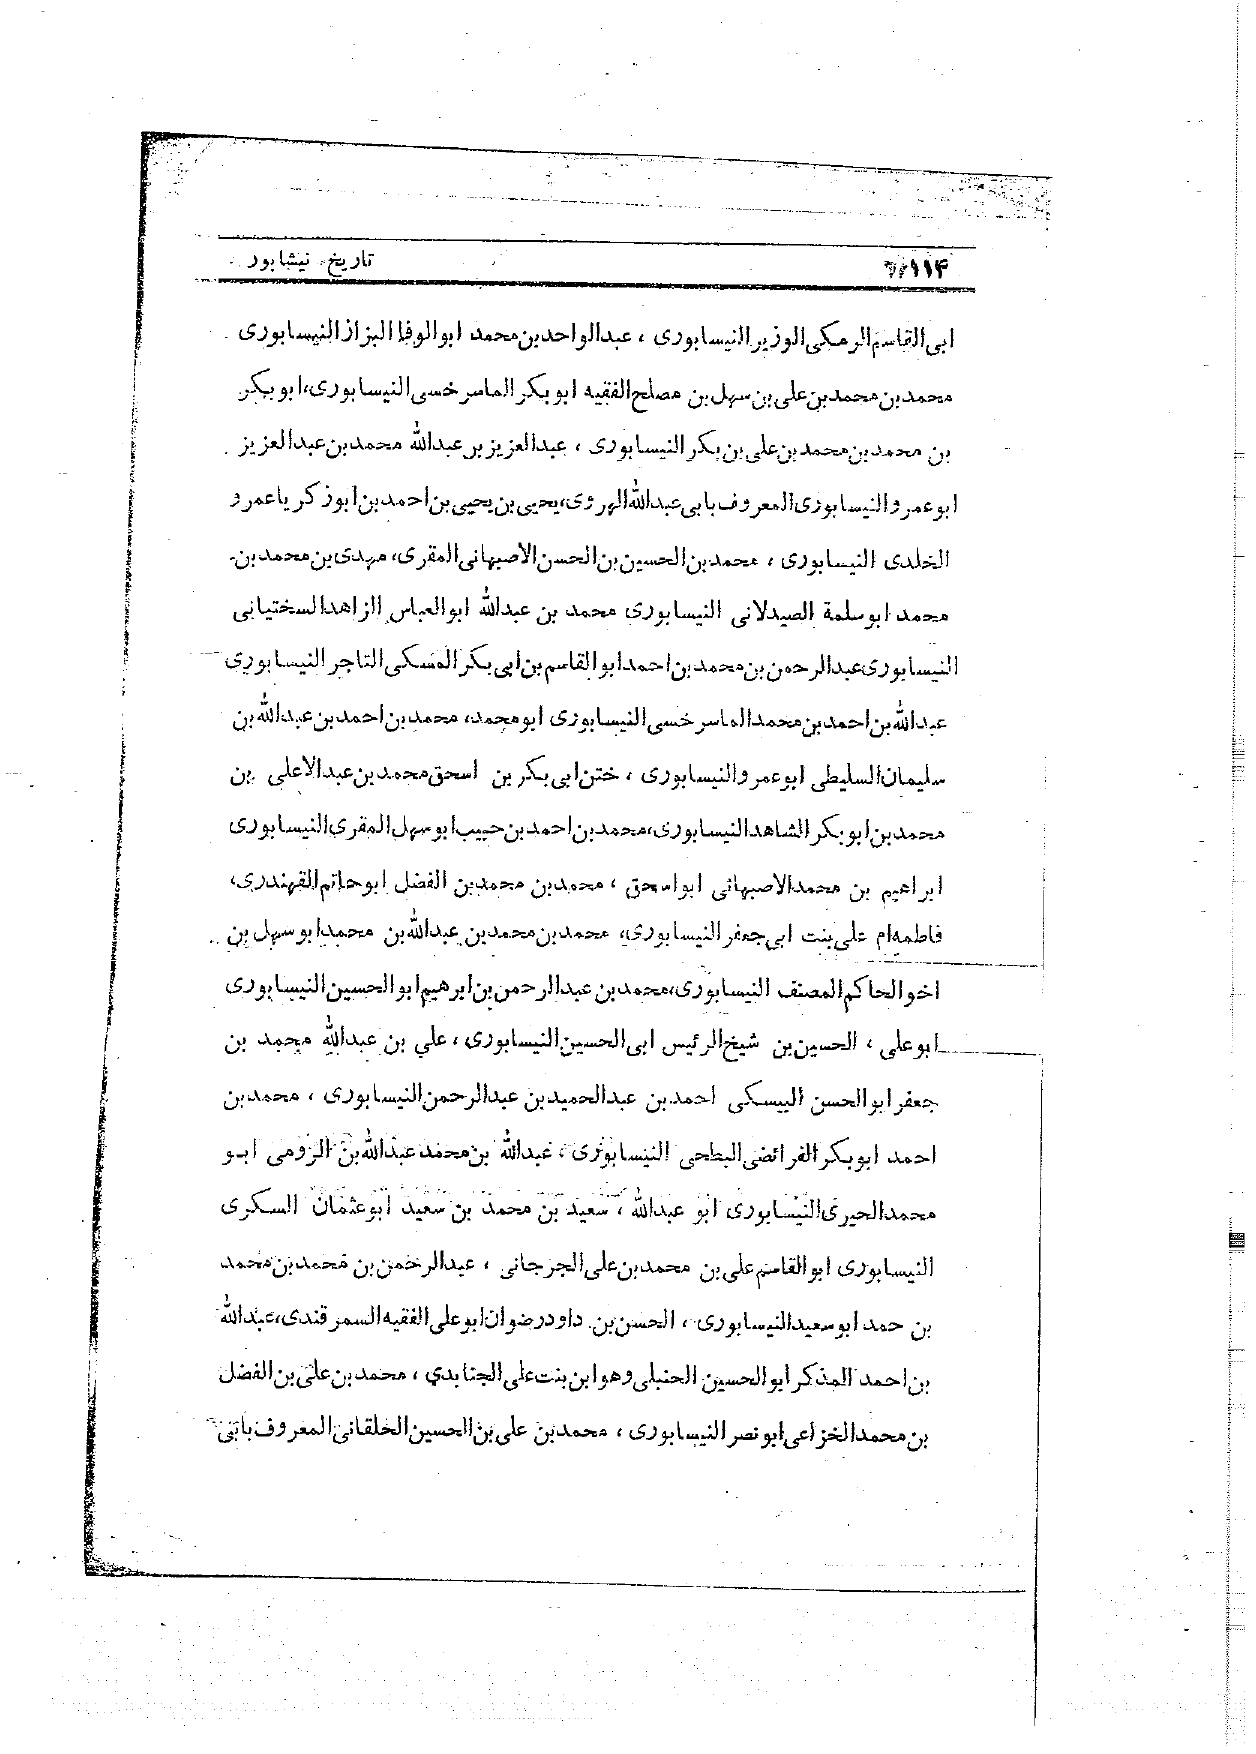 ۱۱۴
تاریخ نیشابور
ابی القاسم الرمکی الوزیر النیسابوری ، عبدالواحد بن محمد ابوالوفا البزاز النیسابوری
محمد بن محمد بن علی بن سهل بن مصلح الفقیه ابوبکر الماسرخسی النیسابوری، ابوبکر
بن محمد بن محمد بن علی بن بکر النیسابوری ، عبدالعزیز بر عبدالله محمد بن عبدالعزیز
ابوعمرو النیسابوری المعروف بابی عبدالله الهروی، یحیی بن یحیی بن احمد بن ابوزکریا عمرو
الخلدی النیسابوری ، محمد بن الحسین بن الحسن الاصبهانی المقری، مهدی بن محمد بن
محمد ابوسلمة الصیدلانی النیسابوری محمد بن عبدالله ابوالعباس الزاهد السختیانی
النیسابوری عبدالرحمن بن محمد بن احمد ابوالقاسم بن ابی بکر المسکی التاجر النیسابوری
عبدالله بن احمد بن محمد الماسرخسی النیسابوری ابومحمد، محمد بن احمد بن عبدالله بن
سلیمان السلیطی ابوعمرو النیسابوری ، ختن ابی بکر بن اسحق محمد بن عبدالاعلی بن
محمد بن ابوبکر الشاهد النیسابوری، محمد بن احمد بن حبیب ابوسهل المقری النیسابوری
ابراهیم بن محمد الاصبهانی ابواسحق ، محمد بن محمد بن الفضل ابوحاتم القهندری،
فاطمه ام علی بنت ابی جعفر النیسابوری، محمد بن محمد بن عبدالله بن محمد ابوسهل بن
اخوالحاکم المصنف النیسابوری، محمد بن عبدالرحمن بن ابرهیم ابوالحسین النیسابوری
ابوعلی ، الحسین بن شیخ الرئیس ابی الحسین النیسابوری ، علی بن عبدالله محمد بن
جعفر ابوالحسن البیسکی احمد بن عبدالحمید بن عبدالرحمن النیسابوری ، محمد بن
احمد ابوبکر الفرائضی البطحی النیسابوری ، عبدالله بن محمد عبدالله بن الرومی ابو
محمد الحیری النیسابوری ابو عبدالله ، سعید بن محمد بن سعید ابوعثمان السکری
النیسابوری ابوالقاسم علی بن محمد بن علی الجرجانی ، عبدالرحمن بن محمد بن محمد
بن حمد ابوسعید النیسابوری ، الحسن بن داود رضوان ابوعلی الفقیه السمرقندی، عبدالله
بن احمد المذکر ابوالحسین الحنبلی وهو ابن بنت علی الجنابدی ، محمد بن علی بن الفضل
بن محمد الخزاعی ابونصر النیسابوری ، محمد بن علی بن الحسین الخلقانی المعروف بابی